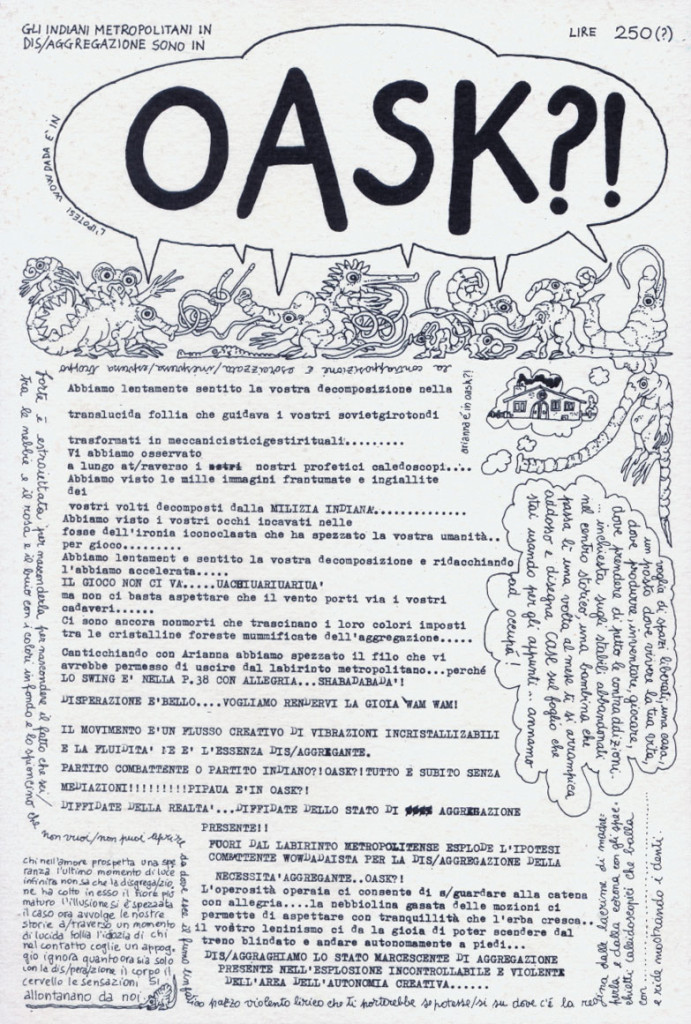 GLI INDIANI METROPOLITANI IN
DIS/AGGREGAZIONE SONO IN
LIRE 250(?)
OASK?!
L'IPOTESI WOWDADA E' IN
la contrapposizione è esorcizzata/inespressa/esterna troppo
forte è estroiettata per nasconderla per nascondere il fatto che sei/
tra le nebbie e il rosa e il buio con i colori in fondo e lo spioncino che
non vuoi/non puoi aprire
arianna è in oask?!
Abbiamo lentamente sentito la vostra decomposizione nella
translucida follia che guidava i vostri sovietgirotondi
trasformati in meccanicisticigestirituali.........
Vi abbiamo osservato
a lungo at/raverso i nostri profetici caledoscopi....
Abbiamo visto le mille immagini frantumate e ingiallite
dei
vostri volti decomposti dalla MILIZIA INDIANA...............
Abbiamo visto i vostri occhi incavati nelle
fosse dell'ironia iconoclasta che ha spezzato la vostra umanità..
per gioco.........
Abbiamo lentament e sentito la vostra decomposizione e ridacchiando
l'abbiamo accelerata.....
IL GIOCO NON CI VA.....UACHIUARIUARIUA'
ma non ci basta aspettare che il vento porti via i vostri
cadaveri......
Ci sono ancora nonmorti che trascinano i loro colori imposti
tra le cristalline foreste mummificate dell'aggregazione.....
Canticchiando con Arianna abbiamo spezzato il filo che vi
avrebbe permesso di uscire dal labirinto metropolitano...perché
LO SWING E' NELLA P.38 CON ALLEGRIA...SHABADABADA'!
DISPERAZIONE E'BELLO....VOGLIAMO RENDERVI LA GIOIA WAM WAM!
IL MOVIMENTO E'UN FLUSSO CREATIVO DI VIBRAZIONI INCRISTALLIZABILI
E LA FLUIDITA' NE E' L'ESSENZA DIS/AGGREGANTE.
PARTITO COMBATTENTE O PARTITO INDIANO?!OASK?!TUTTO E SUBITO SENZA
MEDIAZIONI!!!!!!!!!PIPAUA E'IN OASK?!
DIFFIDATE DELLA REALTA'...DIFFIDATE DELLO STATO DI AGGREGAZIONE
PRESENTE!!
FUORI DAL LABIRINTO METROPOLITENSE ESPLODE L'IPOTESI
COMBATTENTE WOWDADAISTA PER LA DIS/AGGREGAZIONE DELLA
NECESSITA'AGGREGANTE..OASK?!
L'operosità operaia ci consente di s/guardare alla catena
con allegria....la nebbiolina gasata delle mozioni ci
permette di aspettare con tranquillità che l'erba cresca..
il vostro leninismo ci da la gioia di poter scendere dal
treno blindato e andare autonomamente a piedi...
DIS/AGGRAGHIAMO LO STATO MARCESCENTE DI AGGREGAZIONE
PRESENTE NELL'ESPLOSIONE INCONTROLLABILE E VIOLENTE
DELL'AREA DELL'AUTONOMIA CREATIVA......
voglia di spazi liberati, una casa,
un posto dove vivere la tua vita,
dove produrre, inventare, giocare,
dove prendere di petto le contraddizioni.
... inchiesta sugli stabili abbandonati
nel centro storico, una bambina che
passa lì una volta al mese ti si arrampica
addosso e disegna CASE sul foglio che
stai usando per gli appunti... annamo
ad occupà!
chi nell'amore prospetta una spe
ranza l'ultimo momento di luce
infinita non sa che la disgregazio
ne ha colto in esso il fiore più
maturo l'illusione si è spezzata
il caso ora avvolge le nostre
storie a/traverso un momento
di lucida follia l'idozia di chi
nel contatto coglie un appog
gio ignora quanto ora sia solo
con la dis/perazione il corpo il
cervello le sensazioni si
allontanano da noi
pazzo violento lirico che ti porterebbe se potesse/si su dove c'è la re
gina dalle lacrime di madre
perla e dalla collana con gli spec
chietti caleidoscopici che balla
con
e ride mostrando i denti.